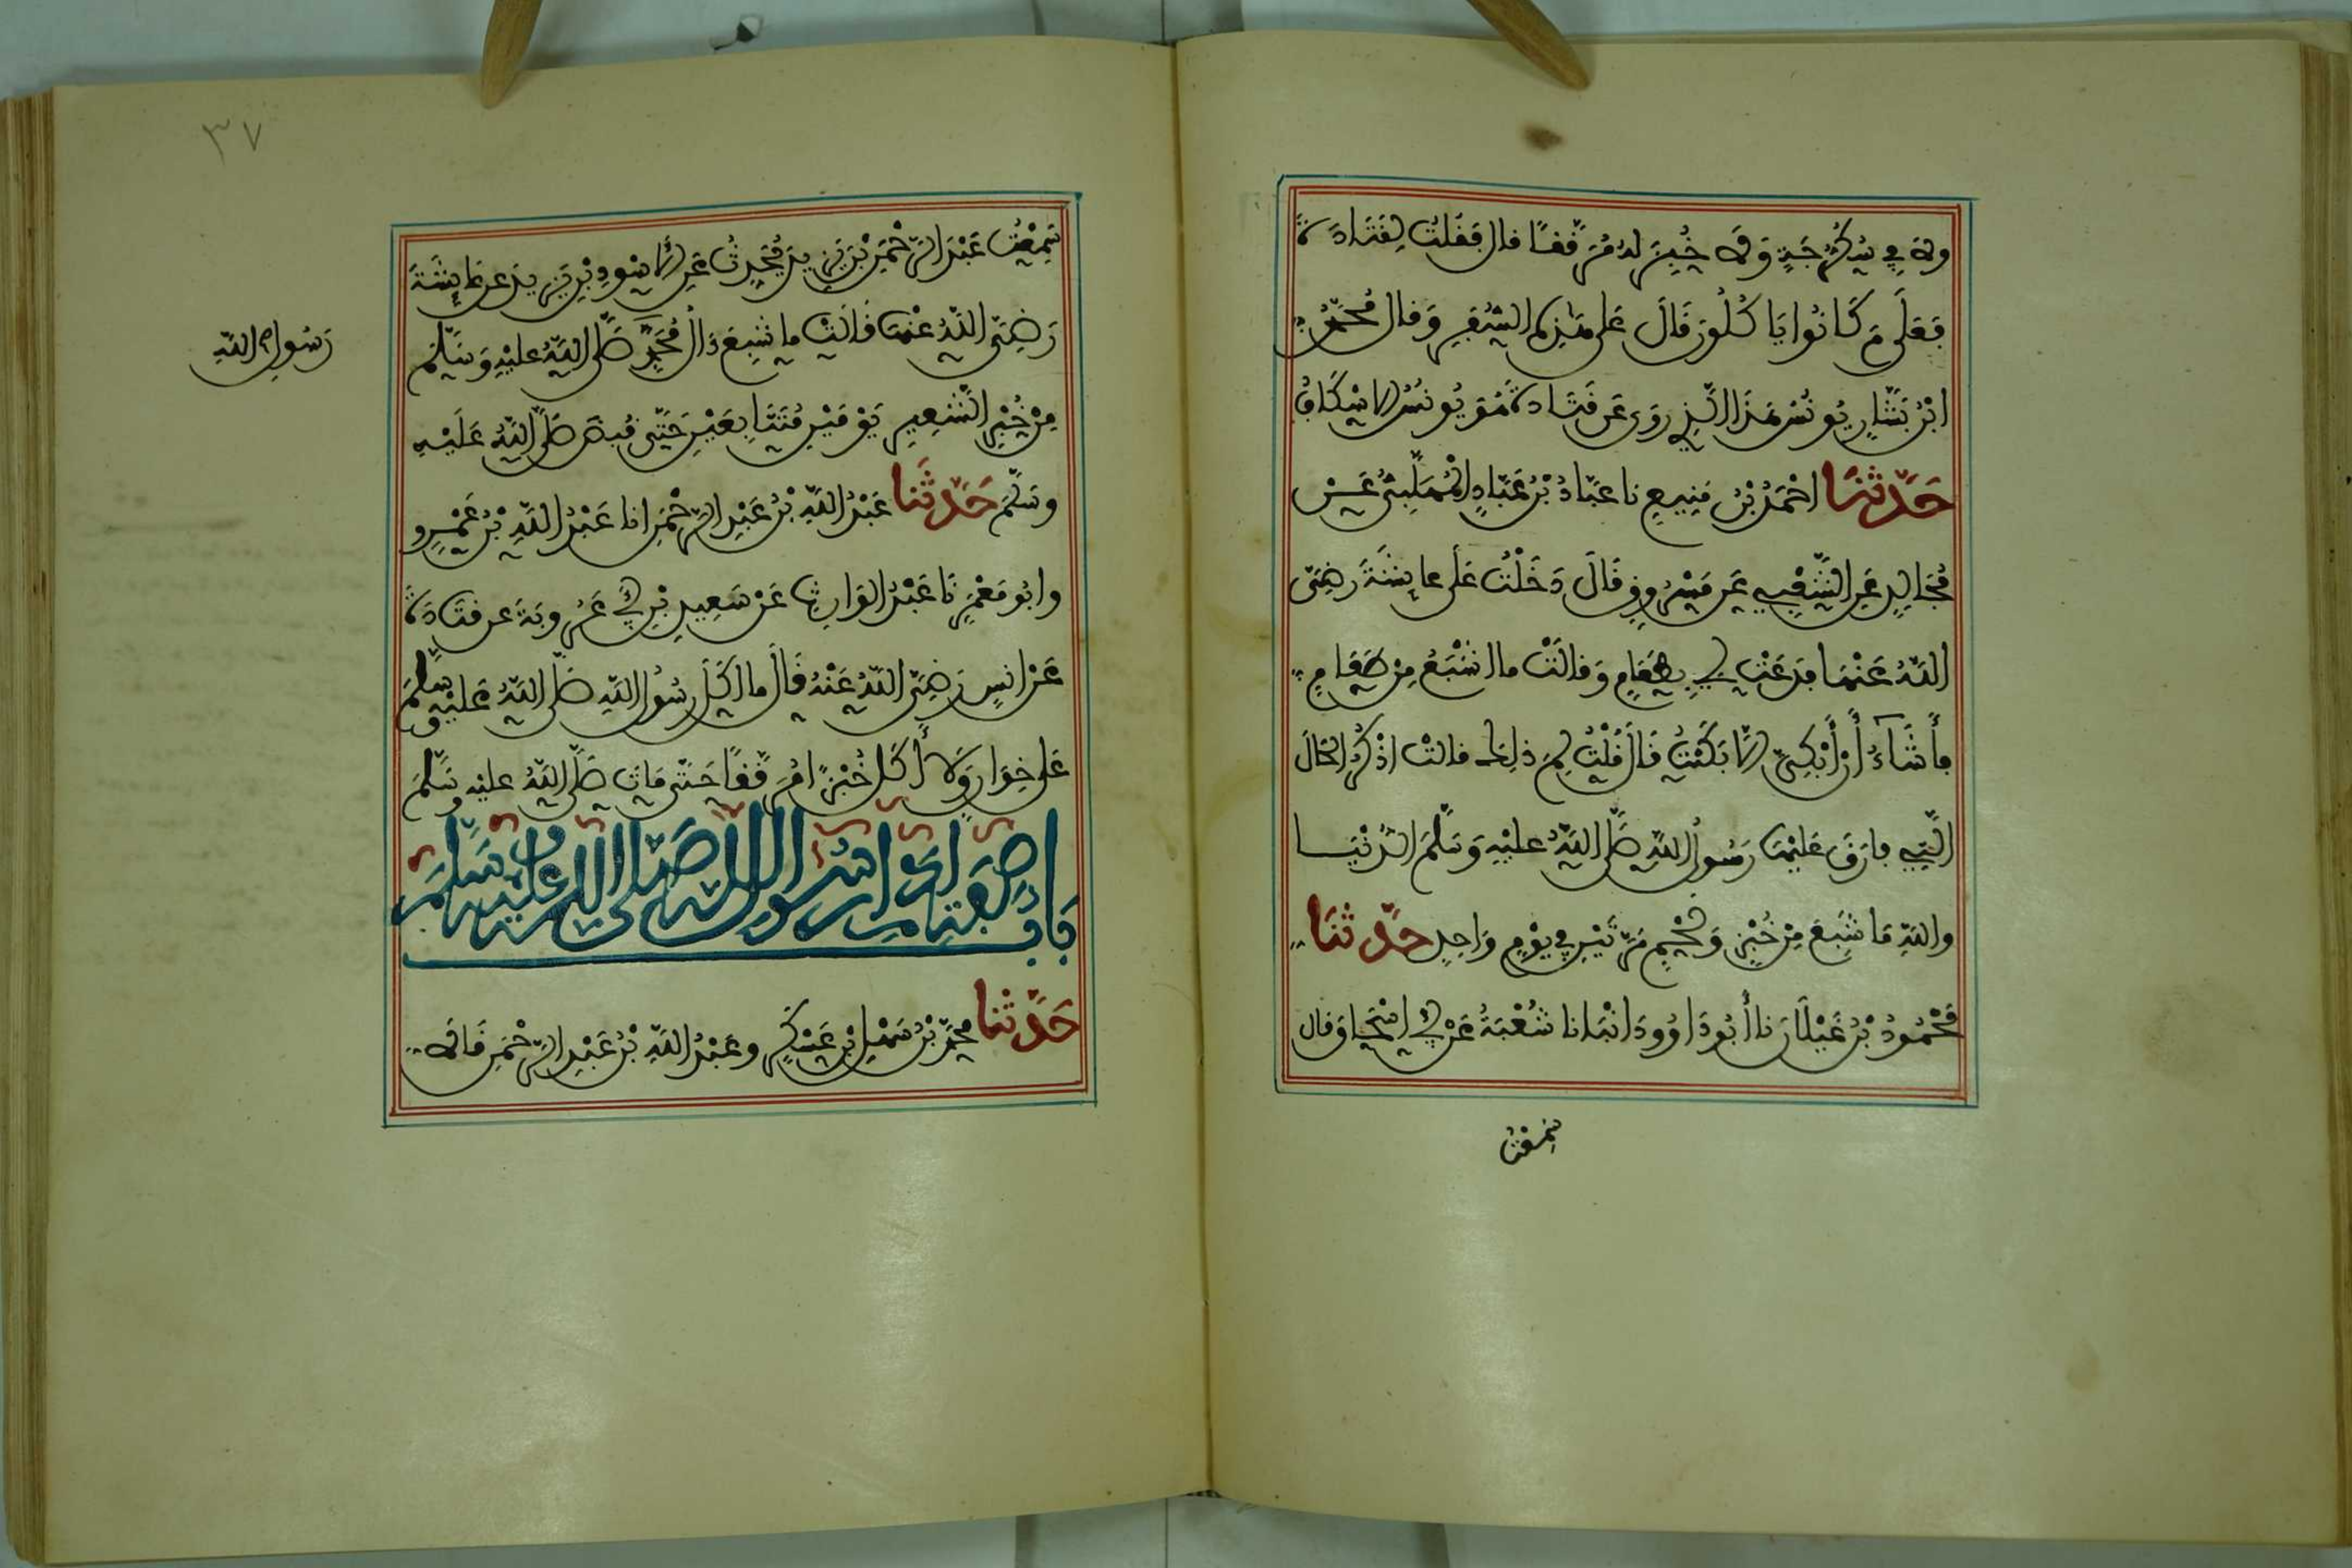 ولا في سُكُرُّجَةٍ وَلا خُبِزَ لهُ مُرَقَّقًا قال فقُلتُ لِقَتادَةَ
فَعَلَى مَ كَانُوا يَا كُلُونَ قَالَ عَلى هَذِهِ السُّفَرِ وَقال مُحَمَّدُ
ابْنُ بَشَّارٍ يُونُسُ هَذَا الَّذِي رَوَى عَن قَتَادَةَ هُوَ يُونُسُ الاسْكَافُ
حَدَّثَنَا احْمَدُ بْنُ مَنِيعٍ نا عَبَّادُ بْنُ عَبَّادٍ الْمُهَلَّبِيُّ عَنْ
مُجَالِدٍ عَنِ الشَّعْبِيِّ عَن مَسْرُوقٍ قَالَ دَخَلْتُ عَلَى عايشَةَ رَضِيَ
اللهُ عَنْهَا فدَعَتْ لِي بِطَعَامٍ وَقالَتْ ما اشْبَعُ مِنْ طَعَامٍ
فأَشَآءُ أَنْ أَبْكِيَ الاَّ بَكَيْتُ قَالَ قُلْتُ لِمَ ذلِكَ قالتْ اذْكُرُ الحَالَ
الَّتِي فارَقَ عَلَيْهَا رَسُولُ اللهِ صَلَّى اللهُ عليْهِ وَسَلَّمَ الدُّنْيَا
واللهِ مَا شَبِعَ مِنْ خُبْزٍ وَلَحْمٍ مَرَّتَيْنِ في يَوْمٍ وَاحِدٍ حَدَّثَنَا
مَحْمُودُ بْنُ غَيْلَانَ نا أَبُو دَاوُودَ انْبَانا شُعْبَةُ عَنْ أَبِي اسْحَاقَ قال
سَمِعْتُ
٣٧
سَمِعْتُ عَبْدَ الرَّحْمَنِ بْنَ يَزِيدَ يُحَدِّثُ عَنِ الأَسْوَدِ بْنِ يَزِيدَ عن عَايِشَةَ
رَضِيَ اللهُ عَنْهَا قَالَتْ ما شَبِعَ ءَالُ مُحَمَّدٍ صَلَّى اللهُ عليْهِ وَسَلَّمَ
رَسُولِ اللهِ
مِنْ خُبْزِ الشَّعِيرِ يَوْمَيْنِ مُتَتَابِعَيْنِ حَتَّى قُبِضَ صَلَّى اللهُ عَلَيْهِ
وسَلَّمَ حَدَّثَنا عَبْدُ اللهِ بْنُ عَبْدِ الرَّحْمَنِ انا عَبْدُ اللهِ بْنُ عَمْرٍو
وابُو مَعْمَرٍ نَا عَبْدُ الوَارِثِ عَنْ سَعِيدِ بْنِ أَبِي عَرُوبَةَ عن قتادَةَ
عَنْ انسٍ رَضِيَ اللهُ عَنْهُ قَالَ ما اكَلَ رسُولُ اللهِ صَلَّى اللهُ عَليْهِ وسَلَّمَ
عَلى خِوَانٍ وَلا أَكَلَ خُبْزًا مُرَقَّقًا حَتَّى مَاتَ صَلَّى اللهُ عليْه وسَلَّمَ
بَابُ صِفَةِ إِدَامِ رَسُولِ اللهِ صَلَّى اللهُ عَلَيْهِ وَسَلَّمَ
حَدَّثنا محمَّدُ بْنُ سَهْلِ بْنِ عَسْكَرٍ وعَبْدُ اللهِ بْنُ عَبْدِ الرَّحْمَنِ قَالا